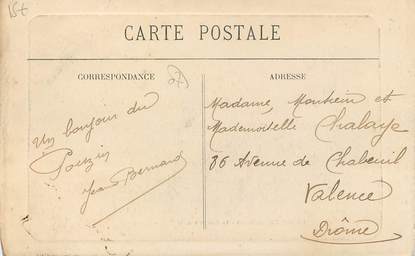 15€
CARTE POSTALE
CORRESPONDANCE
ADRESSE
Un bonjour du
Pouzin
Jean Bernard
Madame, Monsieur et
Mademoiselle Chalaye
86 Avenue de Chabeuil
Valence
Drôme